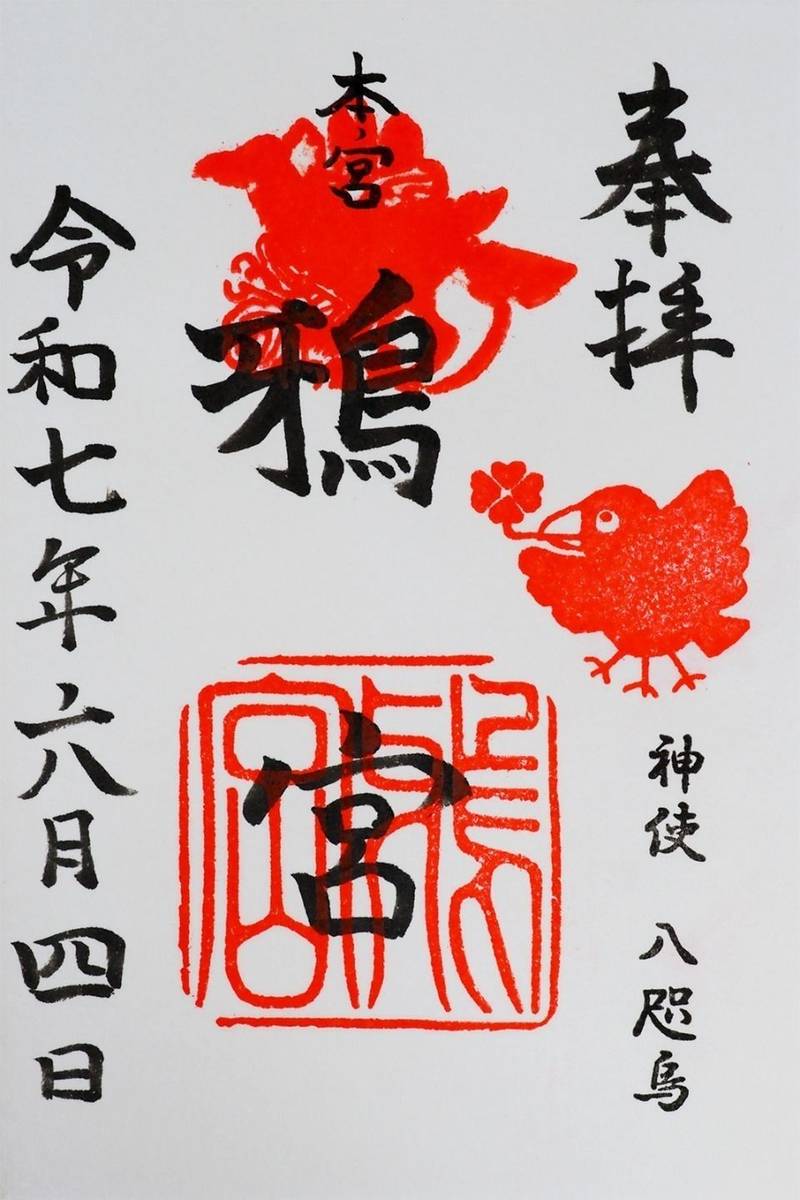 奉拝
神使 八咫烏
本ノ宮
鴉宮
鴉宮
令和七年六月四日